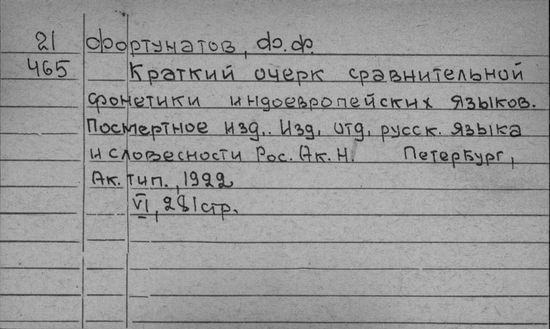 21 Фортунатов, Ф.Ф.
465 Краткий очерк сравнительной
фонетики индоевропейских языков.
Посмертное изд.. Изд. отд. русск. языка
и словесности Рос. Ак. Н. Петербург,
Ак. тип., 1922
VI, 281 стр.